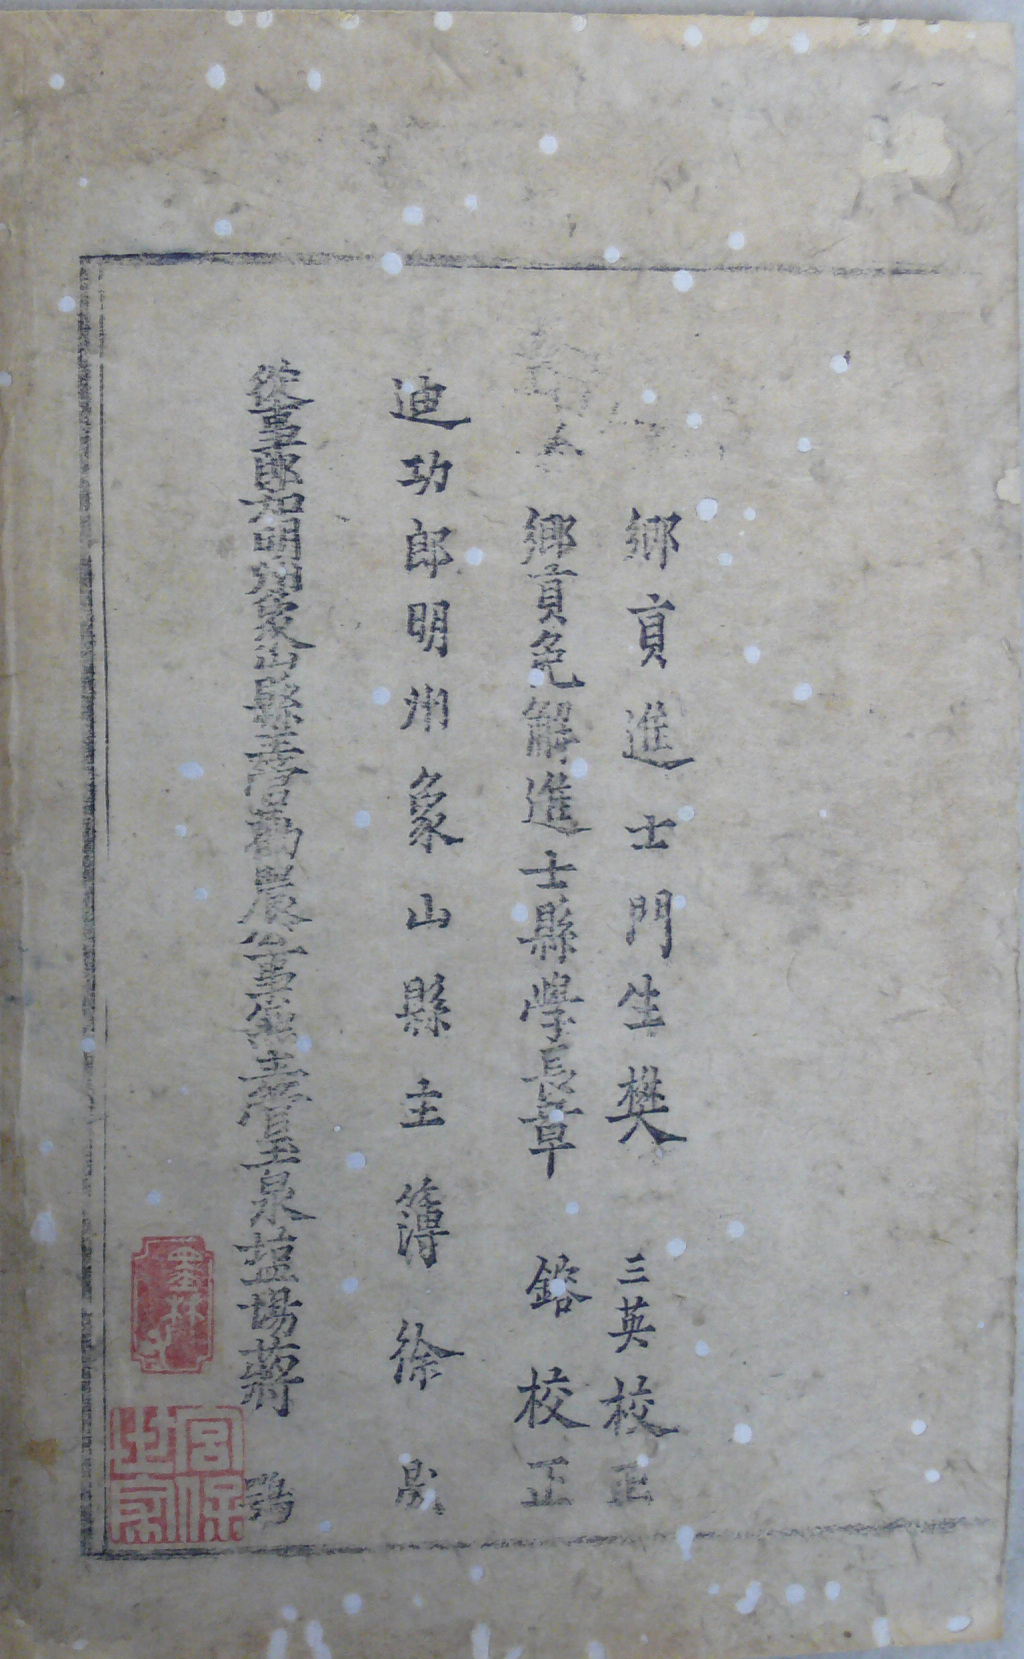 鄉貢進士門生樊 三英校正
鄉貢免解進士縣學長章 鎔校正
迪功郎明州象山縣主簿徐 晟
從事郎知明州象山縣主管勸農公事兼主管玉泉鹽場蔣 鶚
墨林
宮保世家